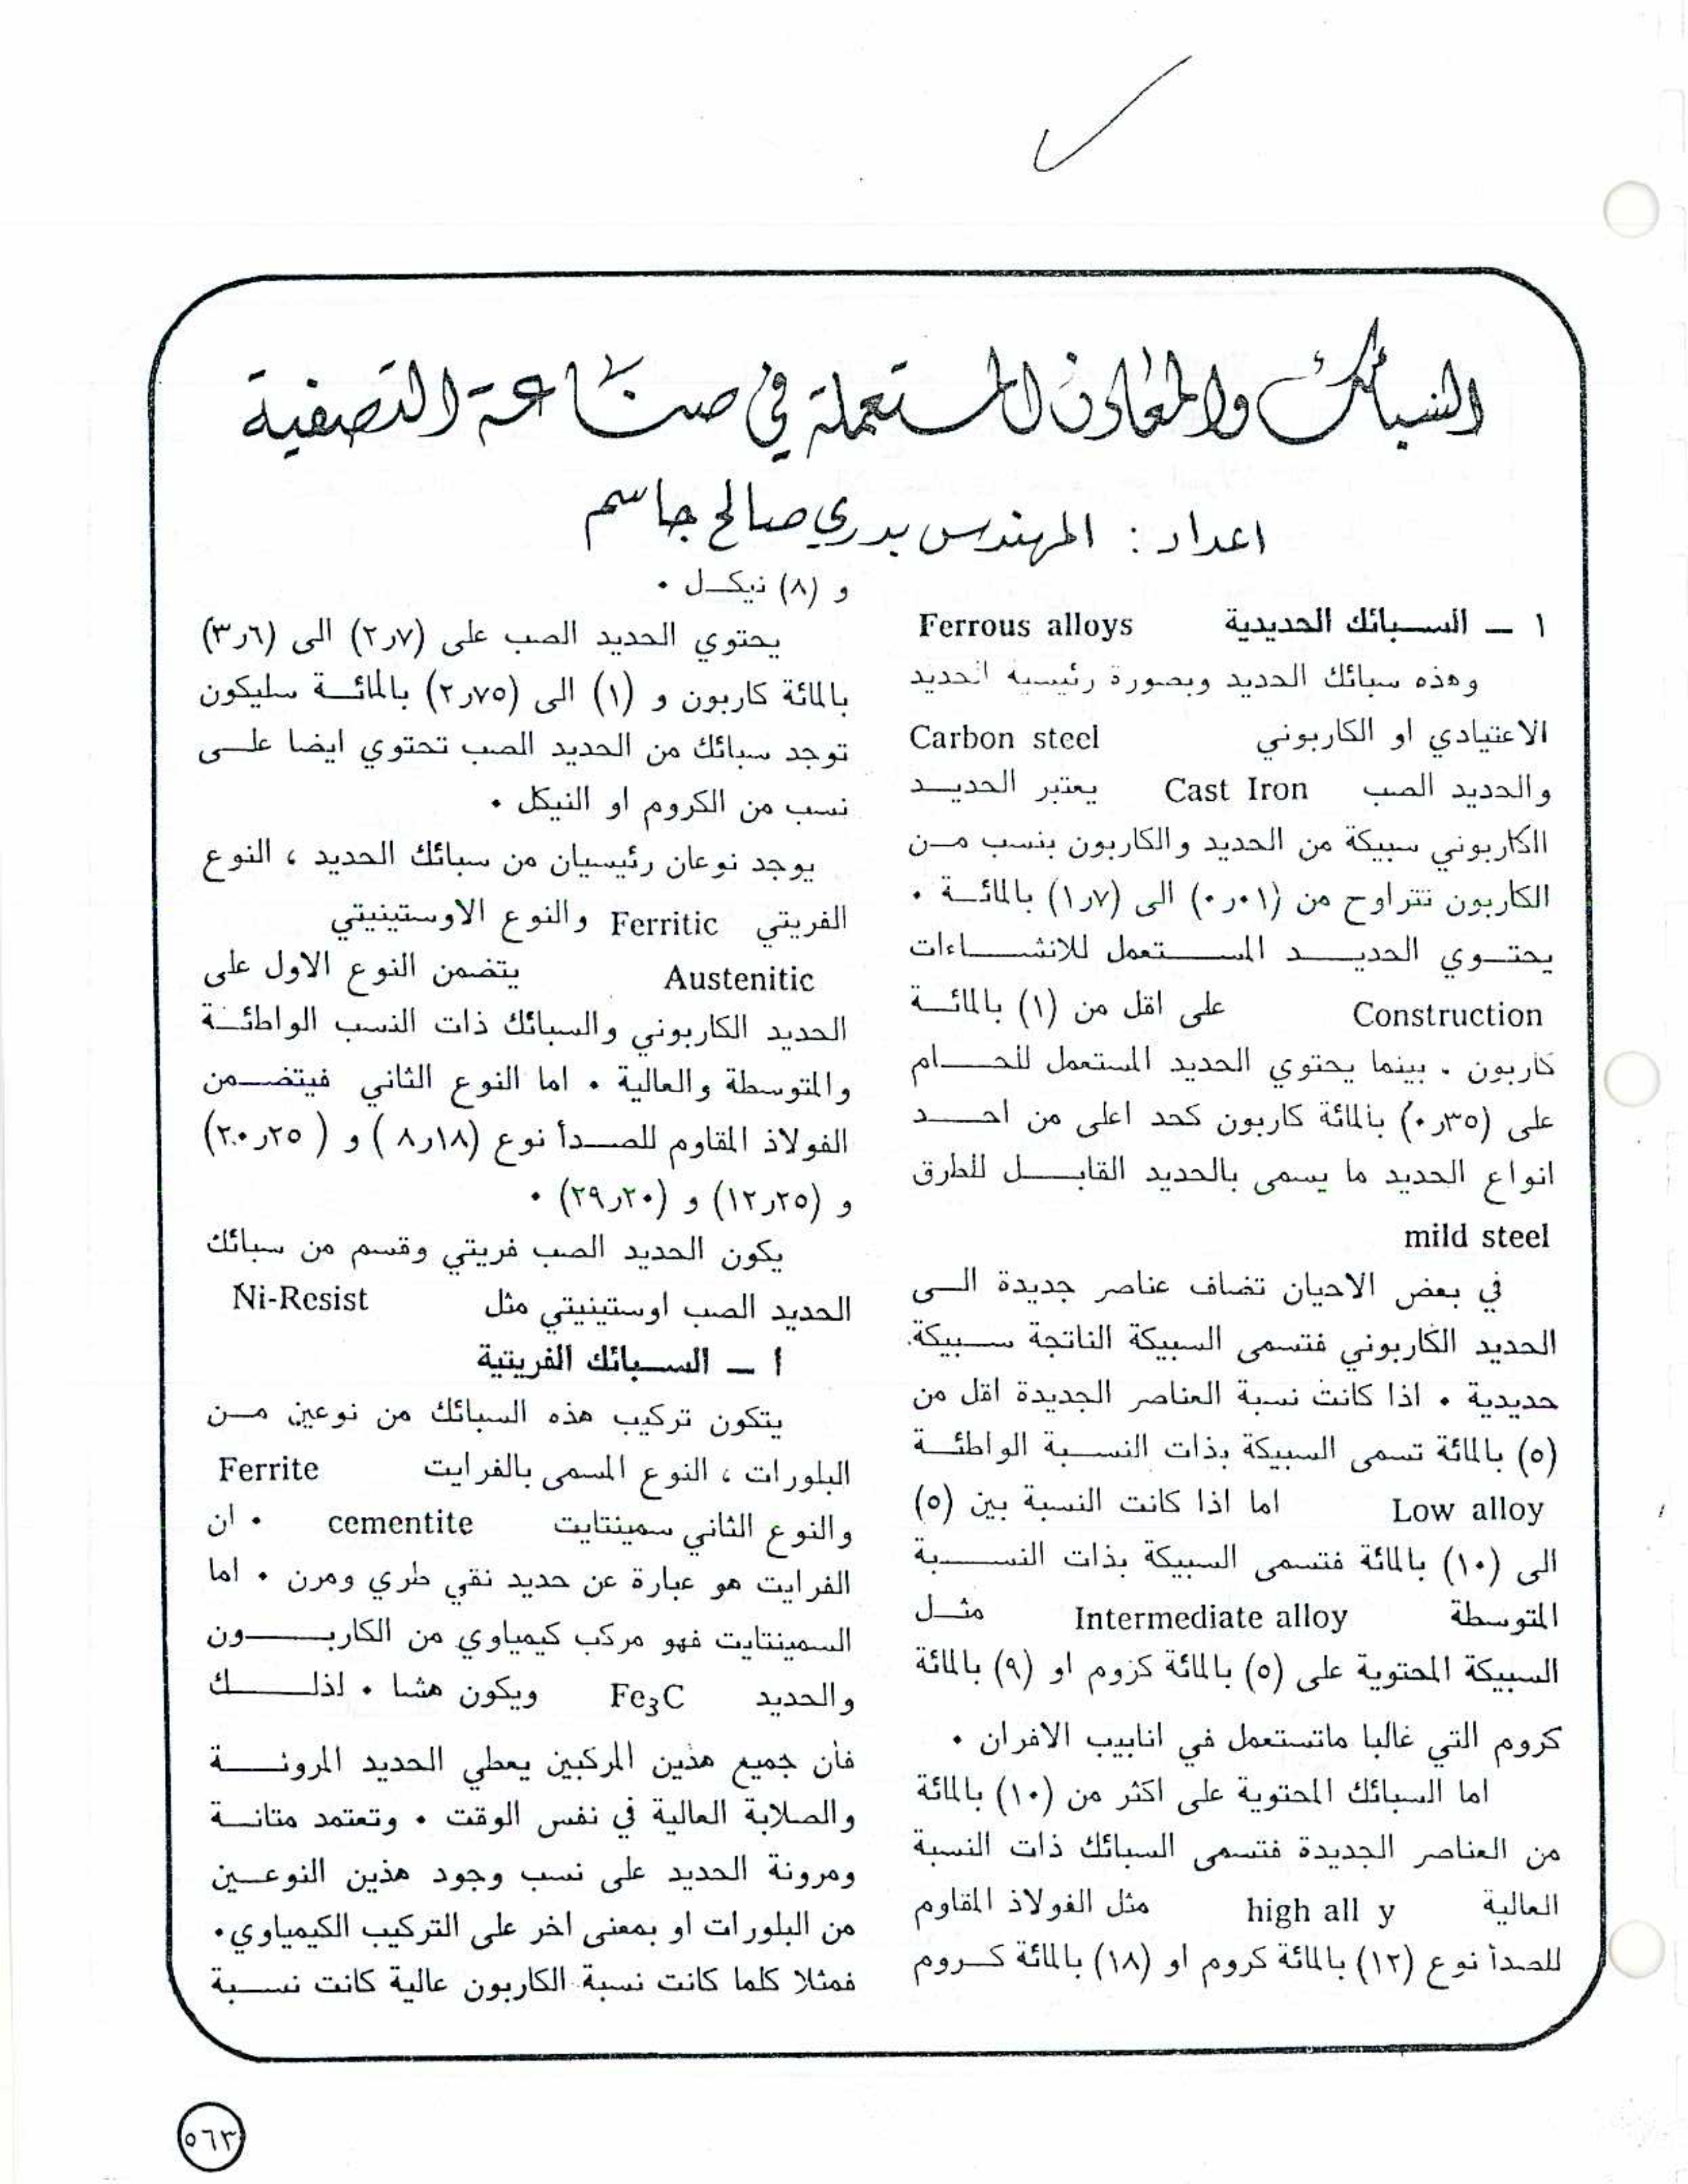 السبائك والمعادن المستعملة في صناعة التصفية
اعداد : المهندس بدري صالح جاسم
١ ــ السبائك الحديدية Ferrous alloys
وهذه سبائك الحديد وبصورة رئيسية الحديد
الاعتيادي او الكاربوني Carbon steel
والحديد الصب Cast Iron يعتبر الحديد
الكاربوني سبيكة من الحديد والكاربون بنسب من
الكاربون تتراوح من (٠٫٠١) الى (١٫٧) بالمائة ٠
يحتوي الحديد المستعمل للانشاءات
Construction على اقل من (١) بالمائة
كاربون . بينما يحتوي الحديد المستعمل للحام
على (٠٫٣٥) بالمائة كاربون كحد اعلى من احد
انواع الحديد ما يسمى بالحديد القابل للطرق
mild steel
في بعض الاحيان تضاف عناصر جديدة الى
الحديد الكاربوني فتسمى السبيكة الناتجة سبيكة
حديدية ٠ اذا كانت نسبة العناصر الجديدة اقل من
(٥) بالمائة تسمى السبيكة بذات النسبة الواطئة
Low alloy اما اذا كانت النسبة بين (٥)
الى (١٠) بالمائة فتسمى السبيكة بذات النسبة
المتوسطة Intermediate alloy مثل
السبيكة المحتوية على (٥) بالمائة كروم او (٩) بالمائة
كروم التي غالبا ماتستعمل في انابيب الافران ٠
اما السبائك المحتوية على اكثر من (١٠) بالمائة
من العناصر الجديدة فتسمى السبائك ذات النسبة
العالية high all y مثل الفولاذ المقاوم
للصدأ نوع (١٢) بالمائة كروم او (١٨) بالمائة كروم
و (٨) نيكل ٠
يحتوي الحديد الصب على (٢٫٧) الى (٣٫٦)
بالمائة كاربون و (١) الى (٢٫٧٥) بالمائة سليكون
توجد سبائك من الحديد الصب تحتوي ايضا على
نسب من الكروم او النيكل ٠
يوجد نوعان رئيسيان من سبائك الحديد ، النوع
الفريتي Ferritic والنوع الاوستينيتي
Austenitic يتضمن النوع الاول على
الحديد الكاربوني والسبائك ذات النسب الواطئة
والمتوسطة والعالية ٠ اما النوع الثاني فيتضمن
الفولاذ المقاوم للصدأ نوع (١٨ر٨) و (٢٥ر٢٠)
و (٢٥ر١٢) و (٢٠ر٢٩) ٠
يكون الحديد الصب فريتي وقسم من سبائك
الحديد الصب اوستينيتي مثل Ni-Resist
أ ــ السبائك الفريتية
يتكون تركيب هذه السبائك من نوعين من
البلورات ، النوع المسمى بالفرايت Ferrite
والنوع الثاني سمينتايت cementite ٠ ان
الفرايت هو عبارة عن حديد نقي طري ومرن ٠ اما
السمينتايت فهو مركب كيمياوي من الكاربون
والحديد Fe₃C ويكون هشا ٠ لذلك
فأن جميع هذين المركبين يعطي الحديد المرونة
والصلابة العالية في نفس الوقت ٠ وتعتمد متانة
ومرونة الحديد على نسب وجود هذين النوعين
من البلورات او بمعنى اخر على التركيب الكيمياوي٠
فمثلا كلما كانت نسبة الكاربون عالية كانت نسبة
٥٦٣